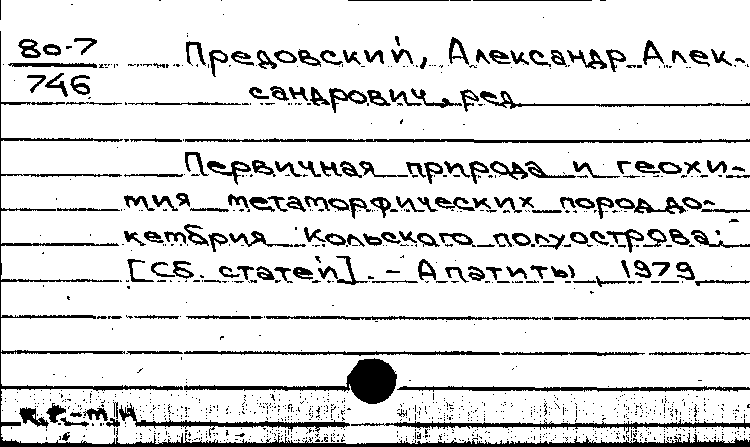 80-7
746
Предовский, Александр Алек-
сандрович, ред
Первичная природа и геохи-
мия метаморфических пород до-
кембрия Кольского полуострова:
[Сб. статей]. - Апатиты, 1979